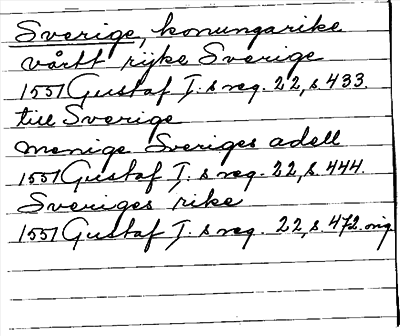 Sverige, konungarike
vårtt rijke Sverige
1551 Gustaf I:s reg. 22, s. 433.
till Sverige
menige Sveriges adell
1551 Gustaf I:s reg. 22, s. 444.
Sveriges rike
1551 Gustaf I:s reg. 22, s. 472. orig